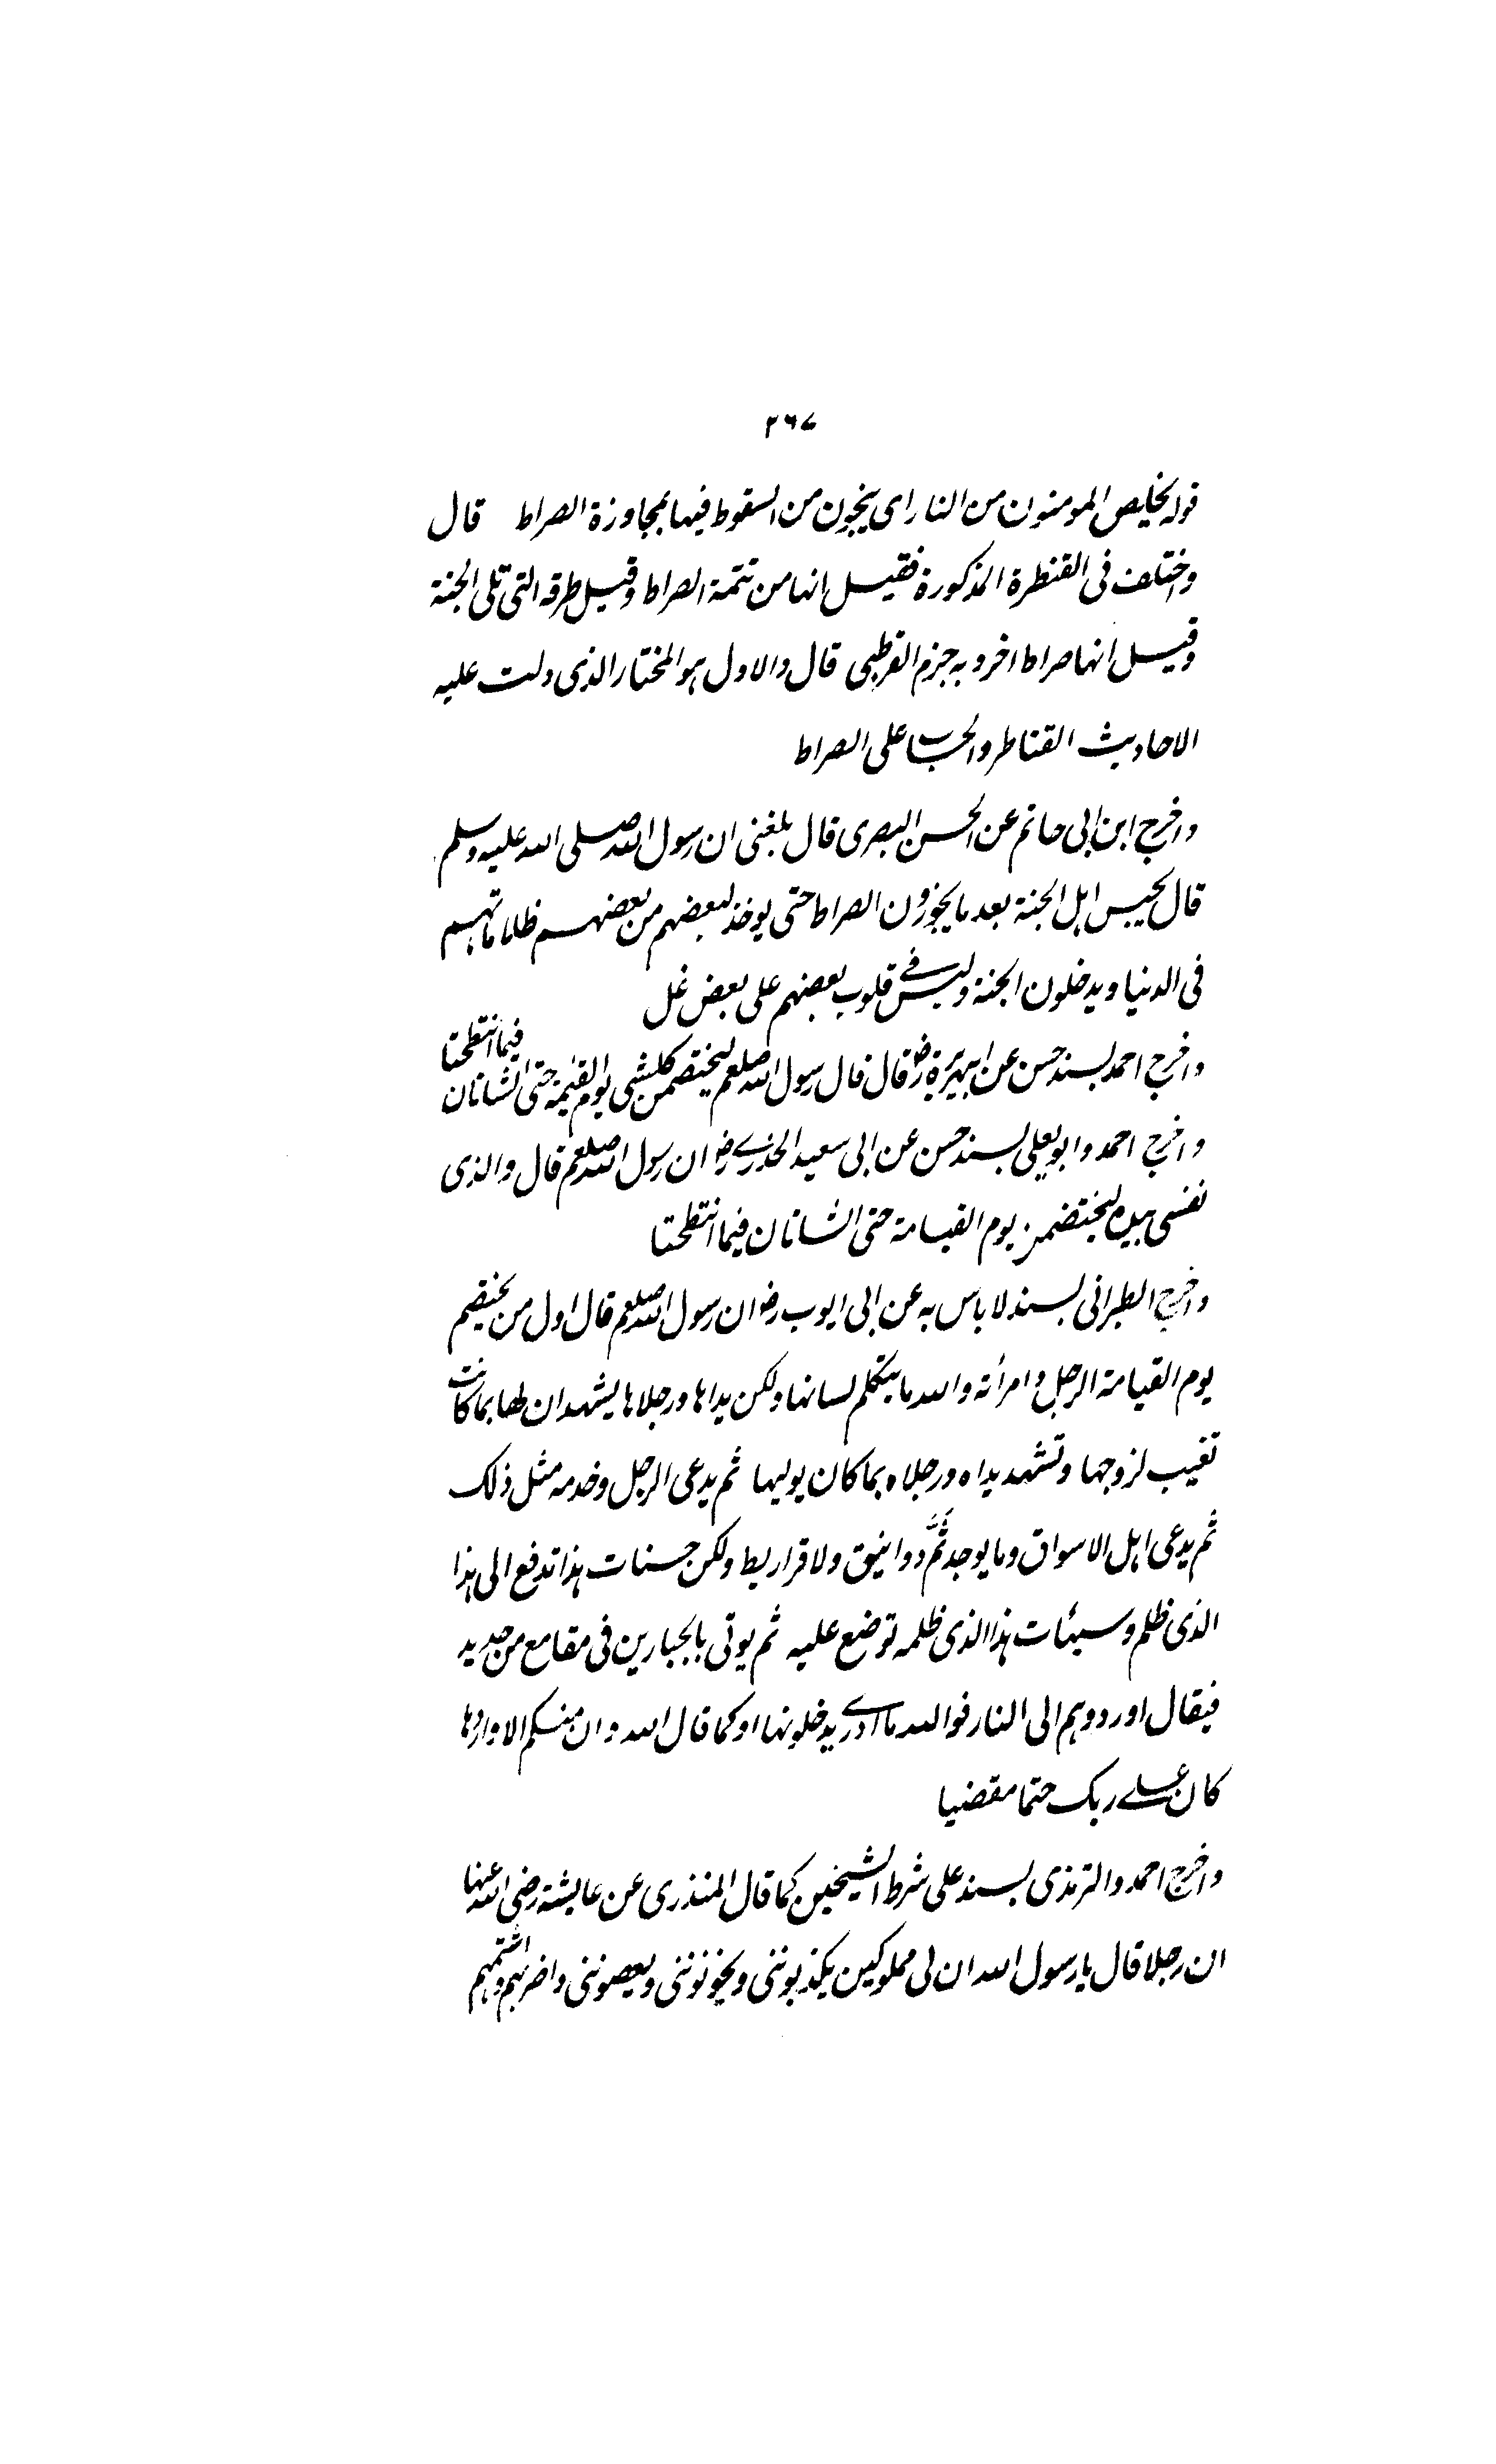 ٢٦٧
قوله يخلص المومنون من النار اى ينجون من السقوط فيها بمجاوزة الصراط قال
واختلف فى القنطرة المذكورة فقيل انها من تتمة الصراط وقيل طرفه التى تلى الجنة
وقيل انها صراط اخر وبه جزم القرطبى قال والاول هو المختار الذى دلت عليه
الاحاديث القناطر والحساب على الصراط
واخرج ابن ابى حاتم عن الحسن البصرى قال بلغنى ان رسول الله صلى الله عليه وسلم
قال يحبس اهل الجنة بعد ما يجوزون الصراط حتى يوخذ لبعضهم من بعضهم ظلاماتهم
فى الدنيا ويدخلون الجنة وليس فى قلوب بعضهم على بعض غل
واخرج احمد بسند حسن عن ابيهريرة رض قال قال رسول الله صلعم ليختصمن كلشى يوم القيمة حتى الشاتان فيما انتطحتا
واخرج احمد وابو يعلى بسند حسن عن ابى سعيد الخدرى رض ان رسول الله صلعم قال والذى
نفسى بيده ليختصمن يوم القيامة حتى الشاتان فيما انتطحتا
واخرج الطبرانى بسند لا باس به عن ابى ايوب رض ان رسول الله صلعم قال اول من يختصم
يوم القيامة الرجل وامرأته والله ما يتكلم لسانها ولكن يداها ورجلاها يشهدان لها بما كانت
تغيب لزوجها وتشهد يداه ورجلاه بما كان يوليها ثم يدعى الرجل وخدمه مثل ذلك
ثم يدعى اهل الاسواق وما يوجد ثَمَّ دوانيق ولا قراريط ولكن حسنات هذا تدفع الى هذا
الذى ظلم وسيئات هذا الذى ظلمه توضع عليه ثم يوتى بالجبارين فى مقامع من حديد
فيقال اوردوهم الى النار فوالله ما ادرى يدخلونها او كما قال الله وان منكم الا واردها
كان على ربك حتما مقضيا
واخرج احمد والترمذى بسند على شرط الشيخين كما قال المنذرى عن عايشة رضى الله عنها
ان رجلا قال يا رسول الله ان لى مملوكين يكذبوننى ويخونوننى ويعصوننى واضربهم واشتمهم